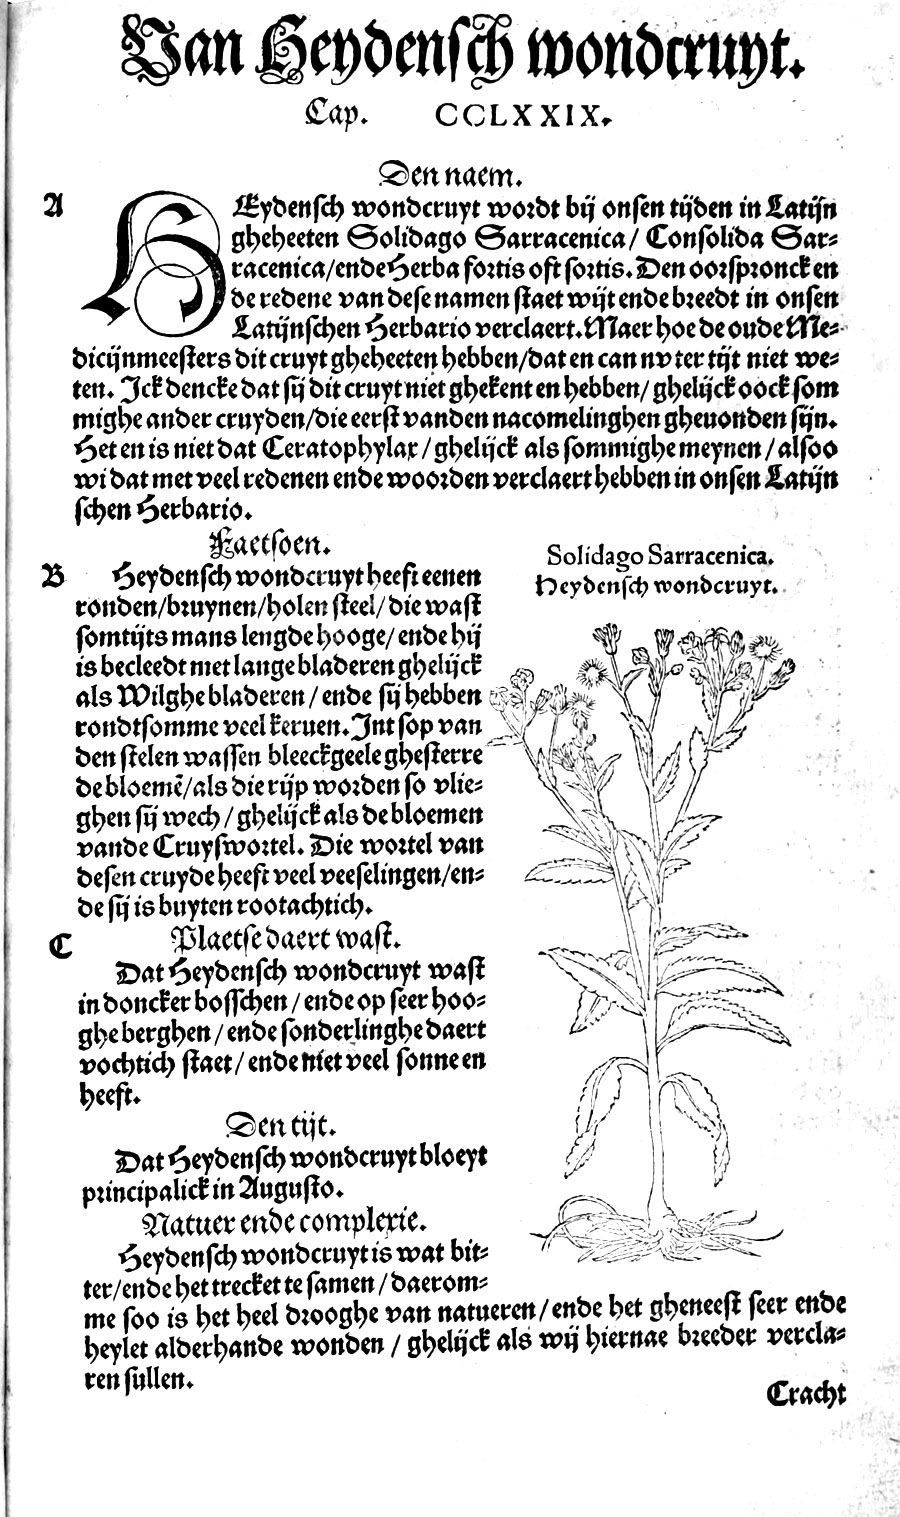 Van Heydensch wondcruyt.
Cap. CCLXXIX.
Den naem.
A
HEydensch wondcruyt wordt bij onsen tijden in Latijn
gheheeten Solidago Sarracenica/ Consolida Sar-
racenica/ende Herba fortis oft fortis. Den oorspronck en
de redene van dese namen staet wijt ende breedt in onsen
Latijnschen Herbario verclaert. Maer hoe de oude Me-
dicijnmeesters dit cruyt gheheeten hebben/dat en can nv ter tijt niet we-
ten. Jck dencke dat sij dit cruyt niet ghekent en hebben/ ghelijck oock som
mighe ander cruyden/die eerst vanden nacomelinghen gheuonden sijn.
Het en is niet dat Ceratophylax/ ghelijck als sommighe meynen/ alsoo
wi dat met veel redenen ende woorden verclaert hebben in onsen Latijn
schen Herbario.
Faetsoen.
B
Heydensch wondcruyt heeft eenen
ronden/bruynen/holen steel/ die wast
somtijts mans lengde hooge/ ende hij
is becleedt met lange bladeren ghelijck
als Wilghe bladeren/ ende sij hebben
rondtsomme veel keruen. Jnt sop van
den stelen wassen bleeckgeele ghesterre
de bloemē/als die rijp worden so vlie-
ghen sij wech/ ghelijck als de bloemen
vande Cruyswortel. Die wortel van
desen cruyde heeft veel veeselingen/en-
de sij is buyten rootachtich.
Solidago Sarracenica.
Heydensch wondcruyt.
C
Plaetse daert wast.
Dat Heydensch wondcruyt wast
in doncker bosschen/ ende op seer hoo-
ghe berghen/ ende sonderlinghe daert
vochtich staet/ ende niet veel sonne en
heeft.
Den tijt.
Dat Heydensch wondcruyt bloeyt
principalick in Augusto.
Natuer ende complexie.
Heydensch wondcruyt is wat bit-
ter/ende het trecket te samen/ daerom-
me soo is het heel drooghe van natueren/ ende het gheneest seer ende
heylet alderhande wonden/ ghelijck als wij hiernae breeder vercla-
ren sullen.
Cracht